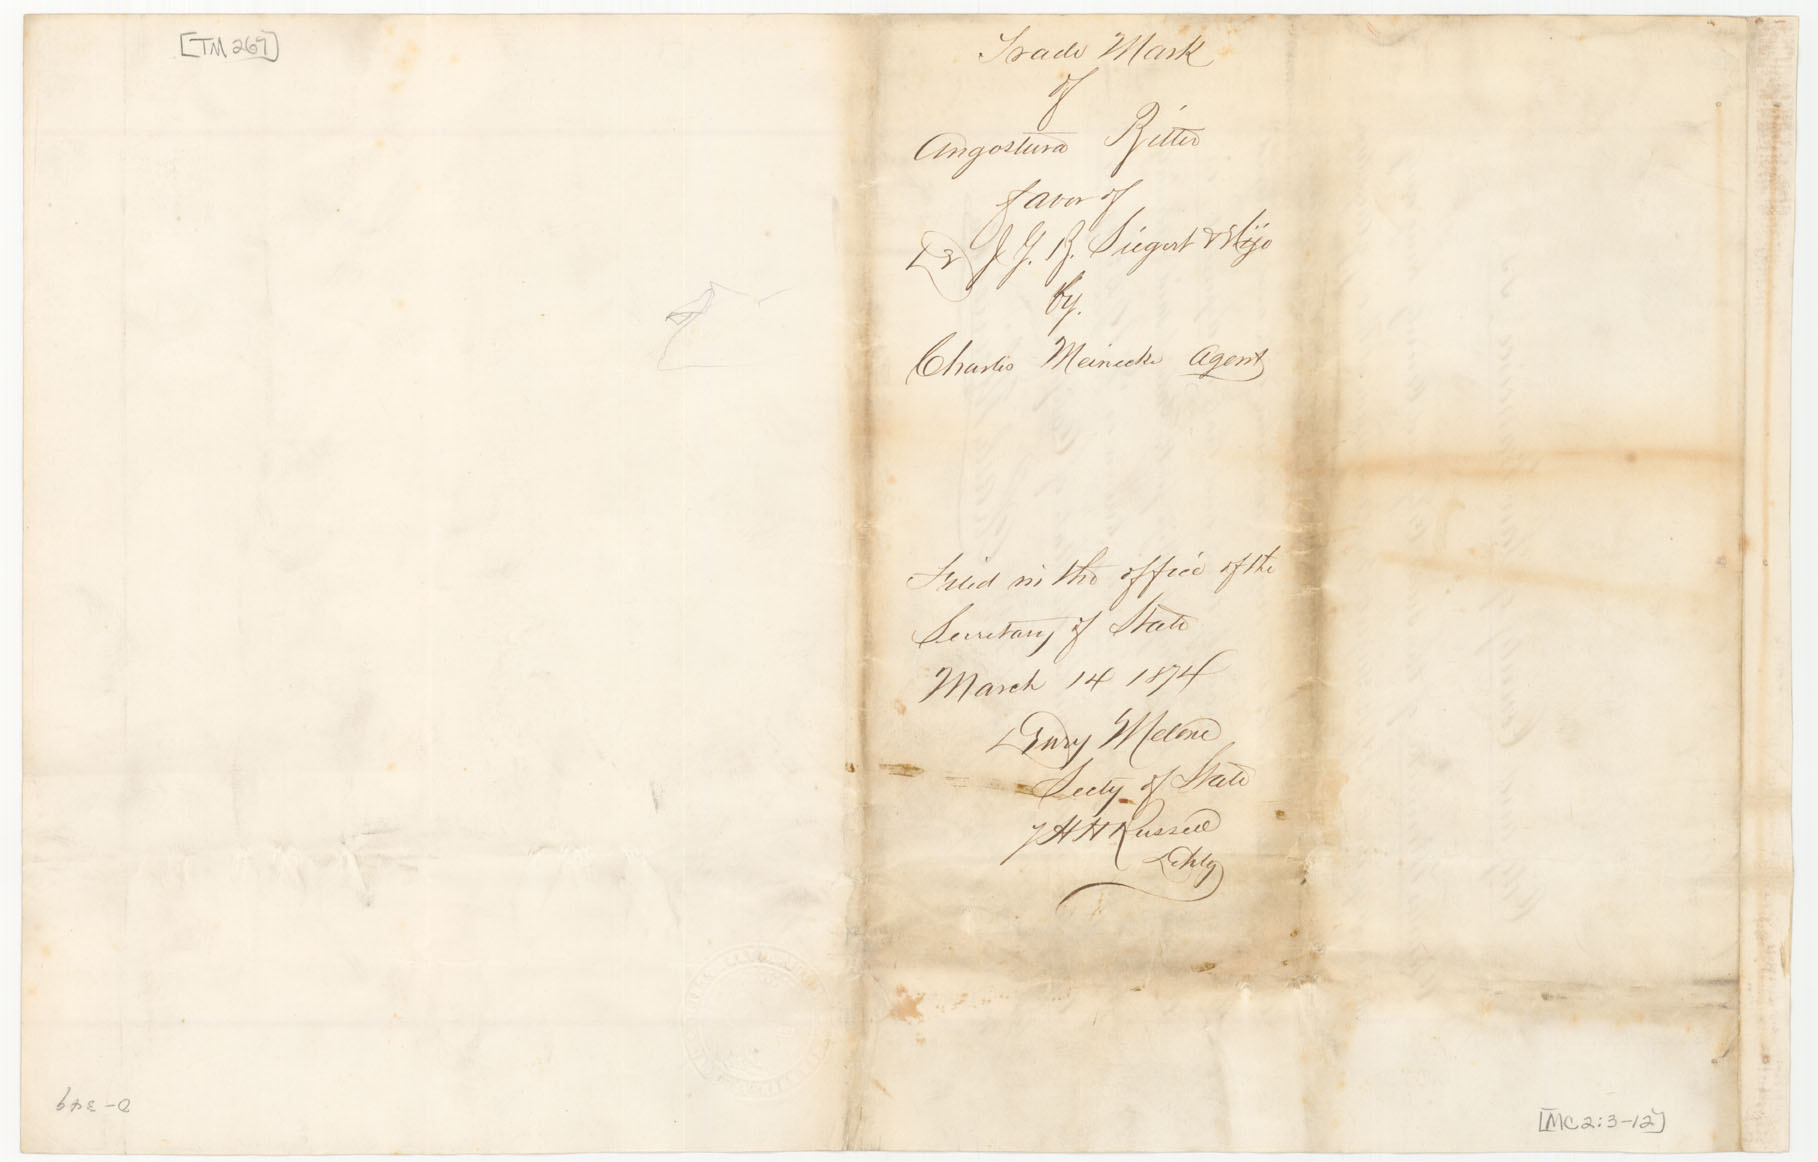 [TM 267]
Trade Mark
of
Angostura Bitter
favor of
Dr J. G. B. Siegert & Hijo
by.
Charles Meinecke Agent
Filed in the office of the
Secretary of State
March 14 1874
Drury Melone
Secty of State
H H Russell
Dpty
D-349
[MC2:3-12]